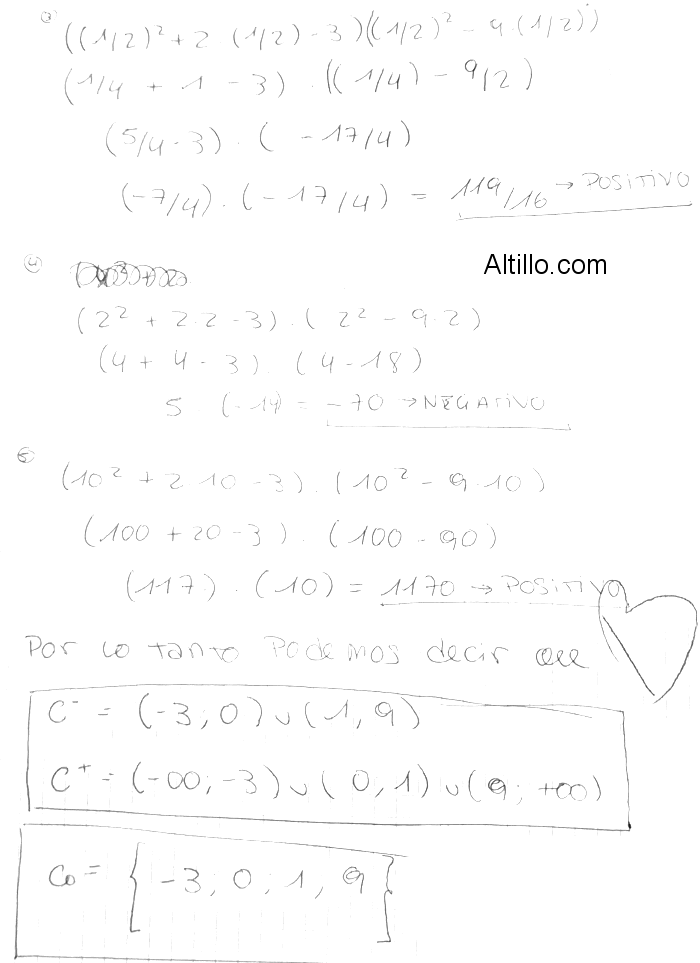 ③ ((1/2)² + 2 (1/2) - 3)((1/2)² - 9.(1/2))
(1/4 + 1 - 3) . ((1/4) - 9/2)
(5/4 - 3) . ( -17/4)
(-7/4) . (-17/4) = 119/16 → POSITIVO
④
Altillo.com
(2² + 2.2 - 3) . ( 2² - 9.2)
(4 + 4 - 3) . (4 - 18)
5 (-14) = -70 → NEGATIVO
⑤ (10² + 2 10 - 3) . (10² - 9.10)
(100 + 20 - 3) . (100 - 90)
(117) . (10) = 1170 → POSITIVO
Por lo tanto Podemos decir que
C⁻ = (-3; 0) ∪ (1, 9)
C⁺ = (-∞; -3) ∪ (0, 1) ∪ (9; +∞)
C₀ = { -3; 0; 1, 9 }